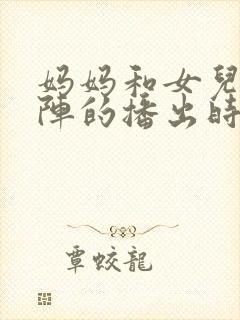 妈妈和女兒
陣的播出時
覃蛟龍